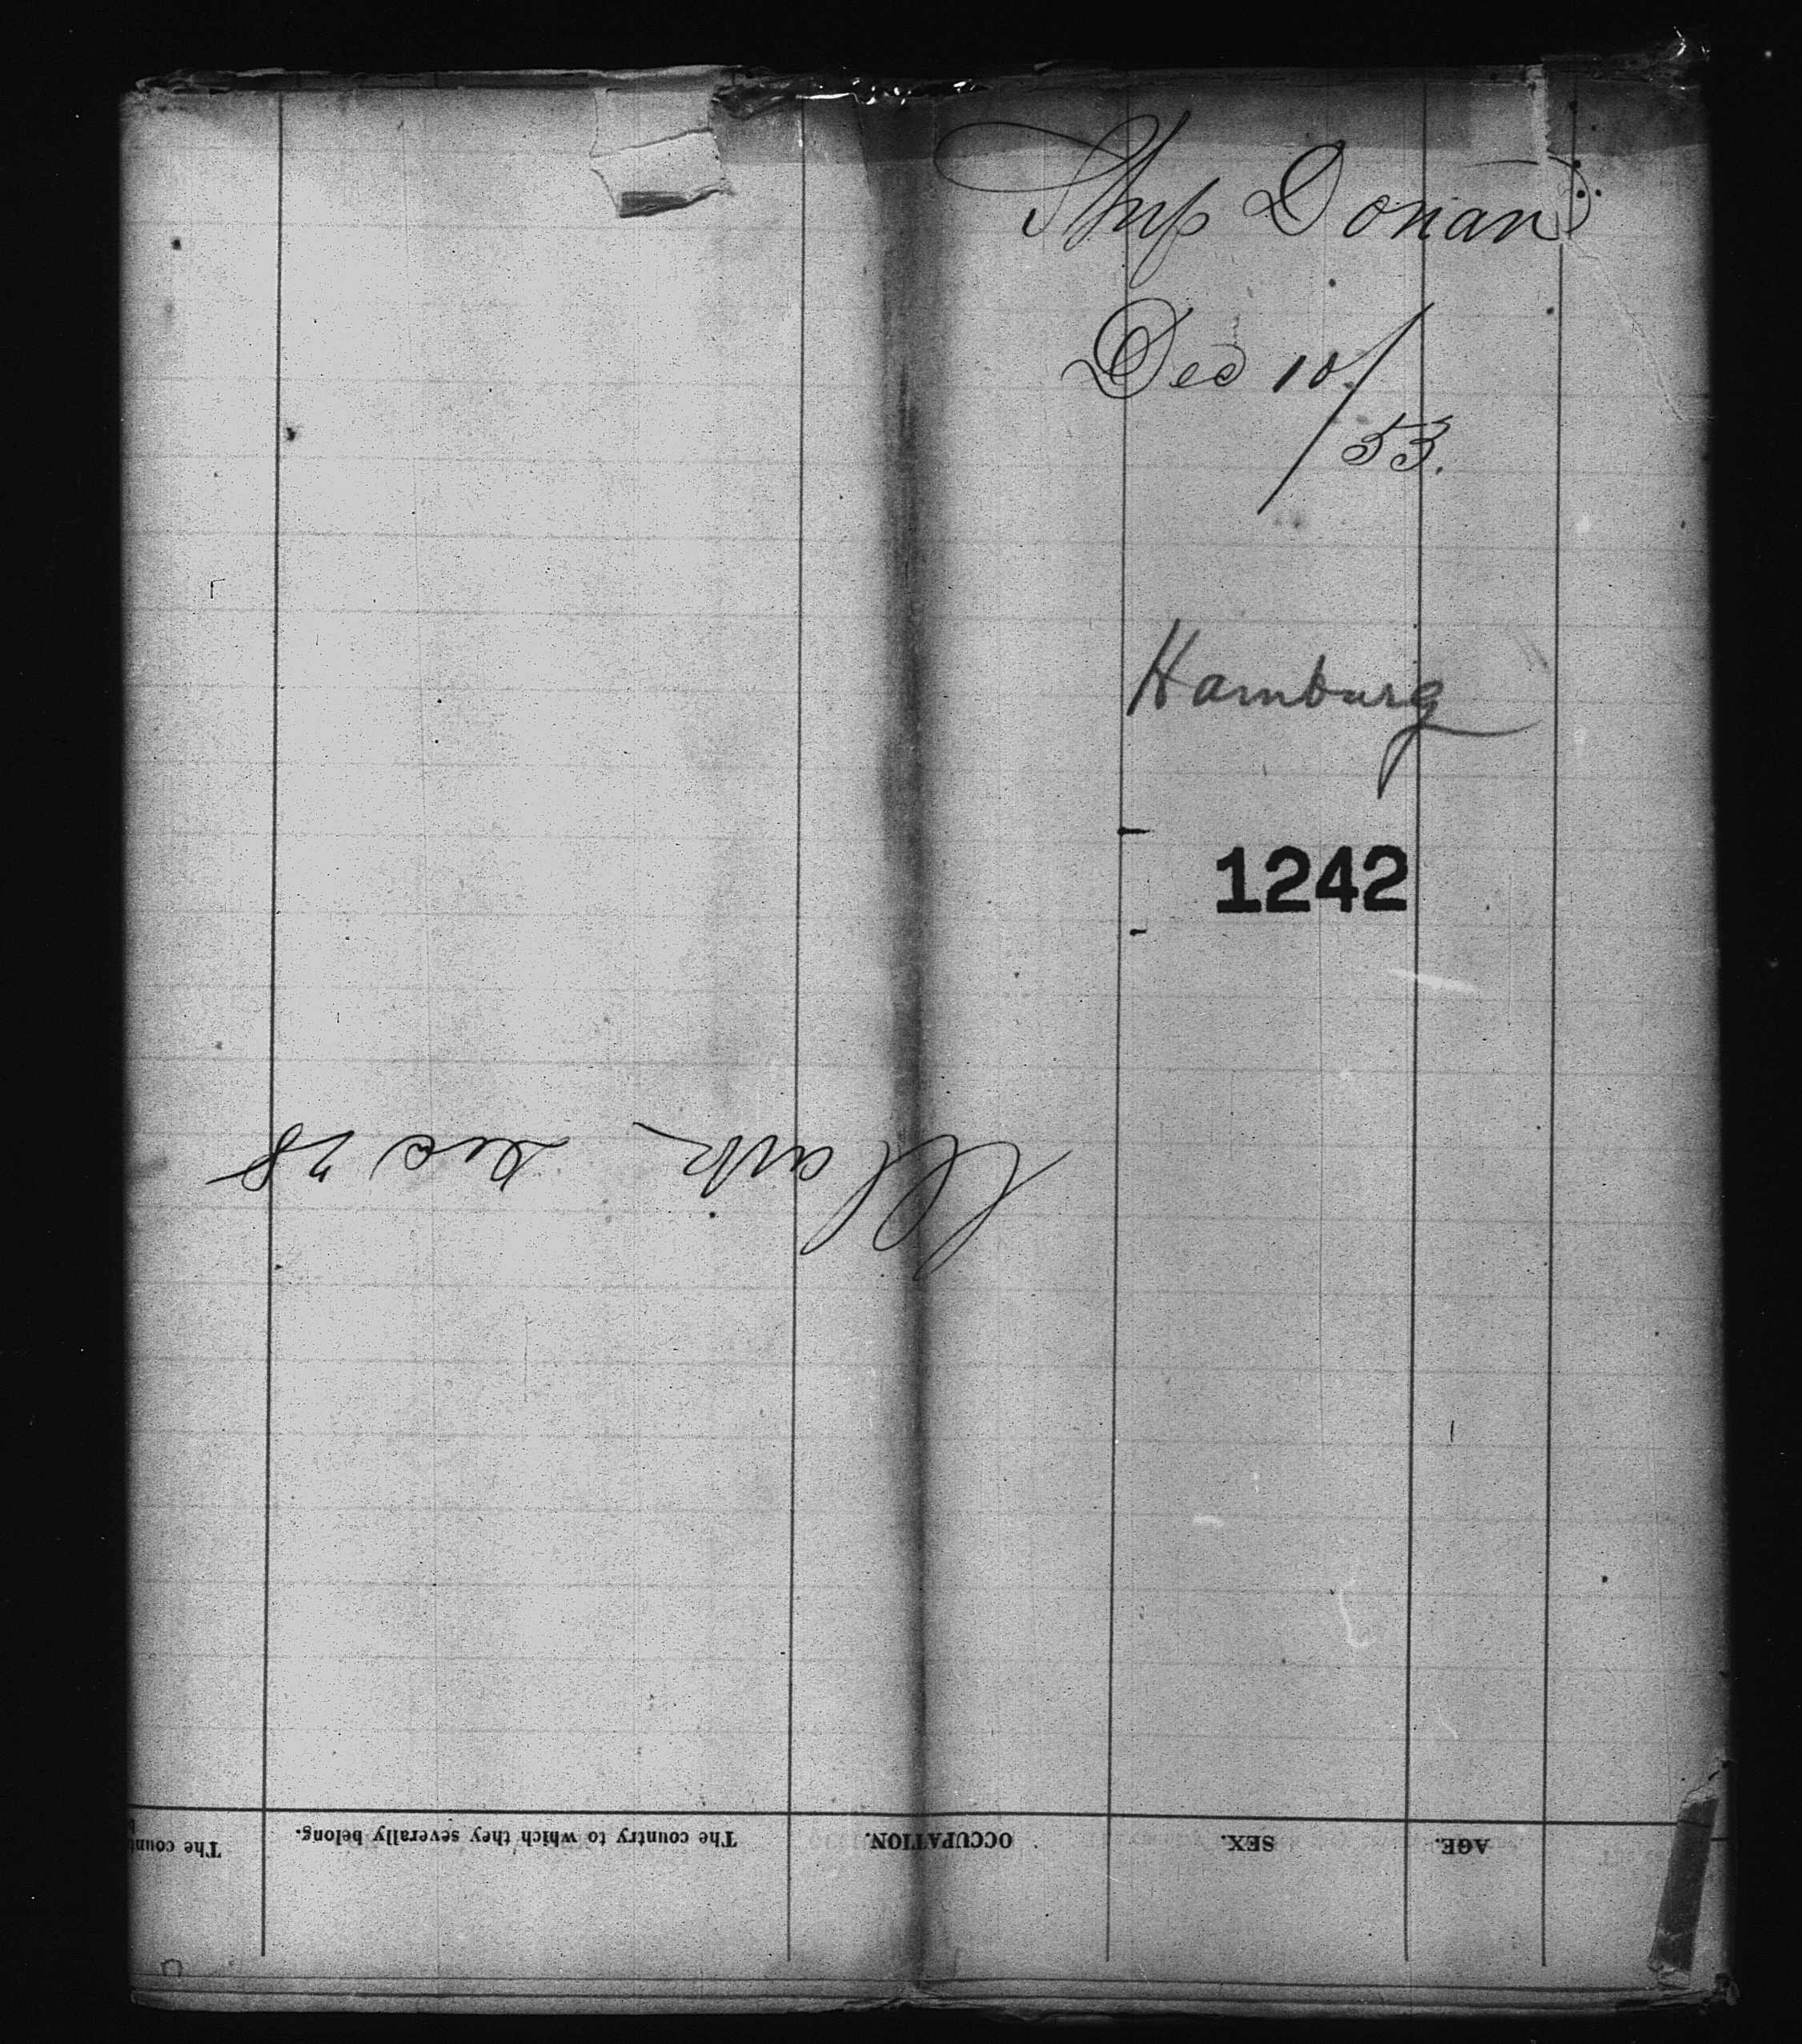 Ship Donau
Dec 10/
/53.
Hamburg
1242
Clark Dec 28
AGE.
SEX.
OCCUPATION.
The country to which they severally belong.
The coun